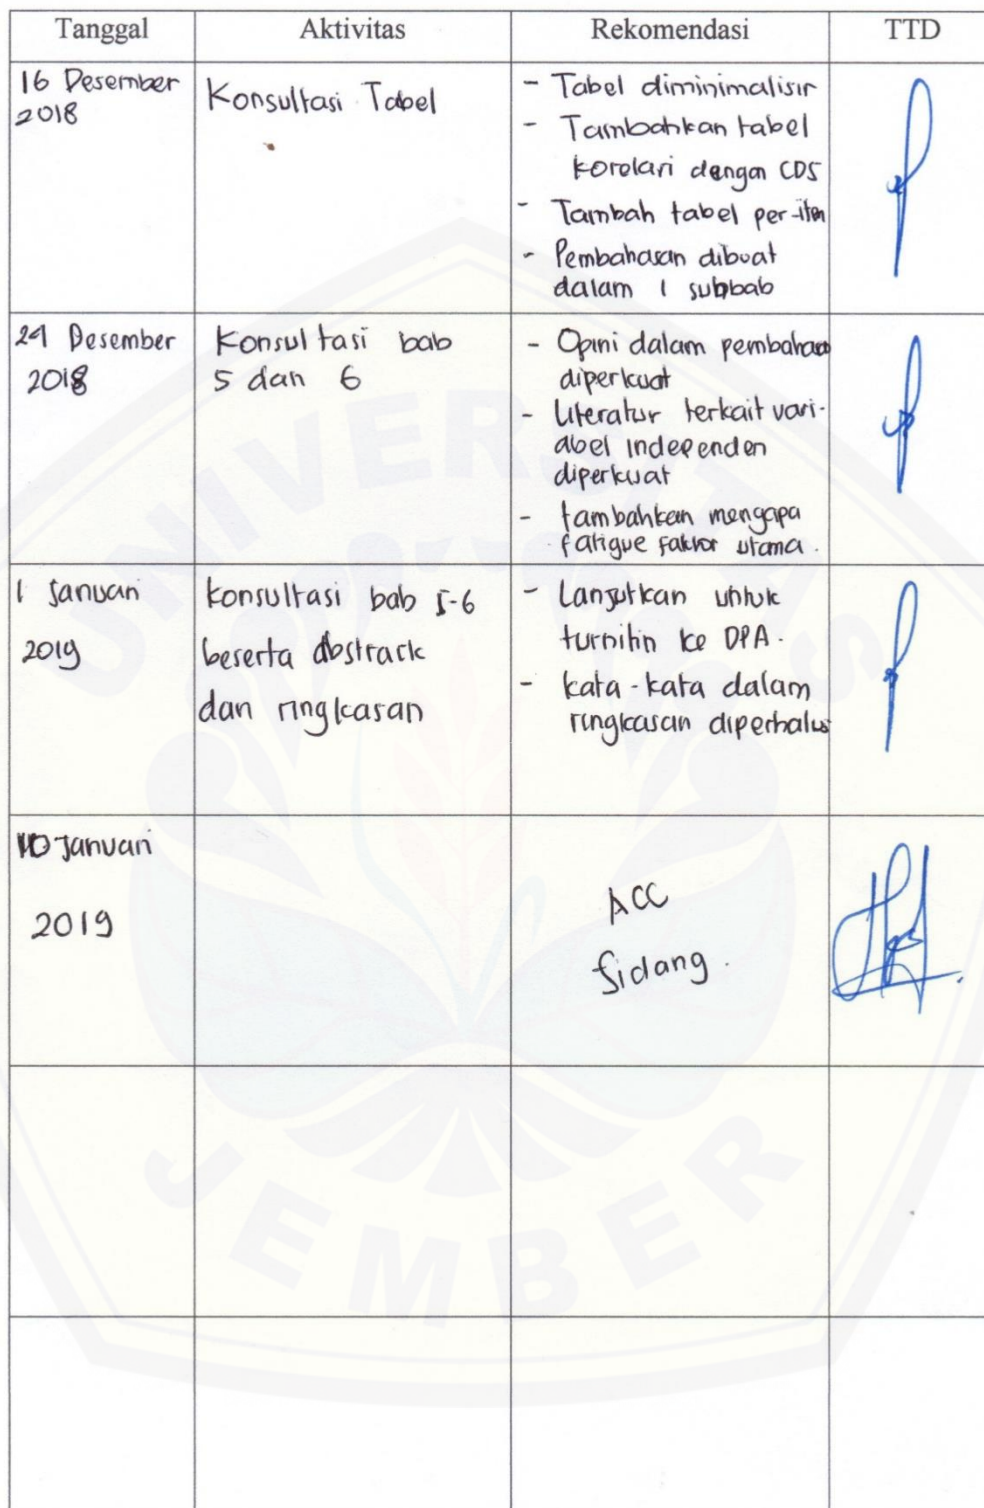 Tanggal Aktivitas Rekomendasi TTD
16 Desember
2018
Konsultasi Tabel
- Tabel diminimalisir
- Tambahkan tabel
korelasi dengan CDS
- Tambah tabel per-item
- Pembahasan dibuat
dalam 1 subbab
24 Desember
2018
Konsultasi bab
5 dan 6
- Opini dalam pembahasan
diperkuat
- Literatur terkait vari-
abel independen
diperkuat
- tambahkan mengapa
fatigue faktor utama.
1 Januari
2019
konsultasi bab 5-6
beserta abstrack
dan ringkasan
- Lanjutkan untuk
turnitin ke DPA.
- kata-kata dalam
ringkasan diperhalus
10 Januari
2019
ACC
Sidang.
UNIVERSITAS
JEMBER